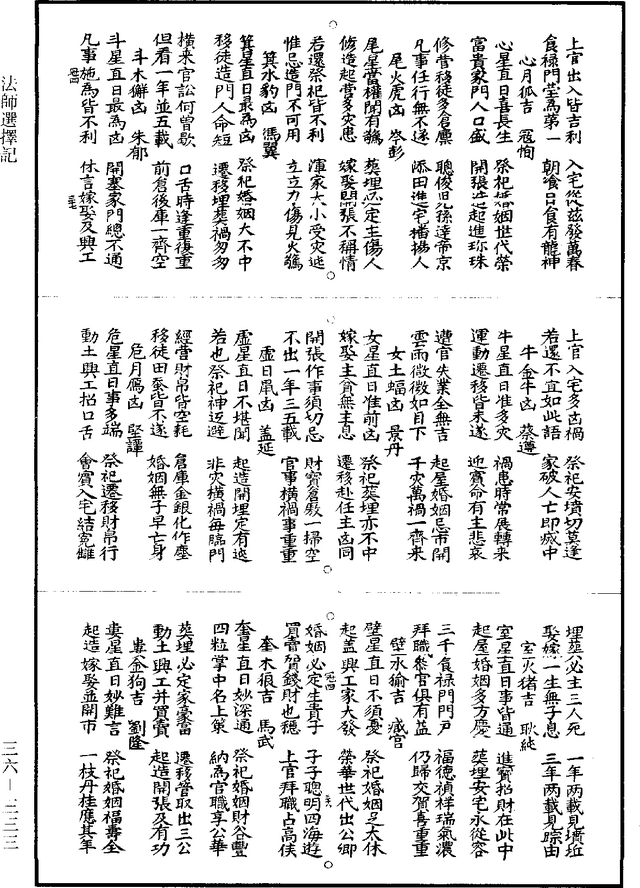 上官出入皆吉利　入宅從茲發萬春
食祿門堂為第一　朝飡口食有龍神
心月狐吉　寇恂
心星直日喜長生　祭祀婚姻世代榮
富貴家門人口盛　開張造起進珍珠
修營移徒多倉廪　聰俊兒孫達帝京
凡事任行無不遂　添田進宅播揚人
尾火虎凶　岑彭
尾星當權聞有　葬埋必定主傷人
修造起營多災患　嫁娶開張不稱情
若還祭祀皆不利　渾家大小受災迍
惟忌造門不可用　立立力傷見火
箕水豹凶　馮異
箕星直日最為凶　祭祀婚姻大不中
移徒造門人命短　遷移埋葬禍匆匆
橫來官訟何曾歇　口舌時逢重復重
但看一年並五載　前倉後庫一齊空
斗木獬凶　朱郁
斗星直日最為凶　開塞家門總不通
凡事施為皆不利　休言嫁娶及興工
上官入宅多凶禍　祭祀安墳切莫逢
若還不宜如此語　家破人亡即滅中
牛金牛凶　蔡遵
牛星直日准多災　禍患時常展轉來
運動遷移皆未遂　迎賓命有主悲哀
遭官失業全無吉　起屋婚姻忌市開
雲雨微微如目下　千灾萬禍一齊來
女土蝠凶　景丹
女星直日准前凶　祭祀葬埋亦不中
嫁娶主貪無主息　遷移赴任主凶同
開張作事須切忌　財寶倉廒一掃空
不出一年三五載　官事橫禍事重重
虛日鼠凶　盖延
虛星直日不堪聞　起造開埋定有迍
若也祭祀神迴避　非灾橫禍每臨門
經營財帛皆空耗　倉庫金銀化作塵
移徒田蚕皆不遂　婚姻無子早亡身
危月鴈凶　堅譚
危星直日事多端　祭祀遷移財帛行
動土興工招口舌　會賓入宅結寃讎
埋葬必主三人死　一年兩載見墳坵
娶嫁一生無子息　三年兩載見踪由
室火猪吉　耿純
室星直日事皆通　進寶招財在此中
起屋婚姻多方慶　葬埋安宅永從容
三千食祿門門戶　福德禎祥瑞氣濃
拜職參官俱有益　仍歸交賀喜重重
壁水貐吉　臧宮
壁星直日不須憂　祭祀婚姻足太休
起盖興工家大發　榮華世代出公卿
婚姻必定生貴子　子子聰明四海遊
買賣貿錢財也穗　上官拜職占高侯
奎木狼吉　馬武
奎星直日妙深通　祭祀婚姻財谷豐
四粒掌中名上策　納為官職享公華
葬埋必定家豪富　遷移管取出三公
動土興工并買賣　起造開張及有功
婁金狗吉　劉隆
婁星直日妙難言　祭祀婚姻福壽全
起造嫁娶並開市　一枝丹桂應其年
法師選擇記
三六—三三三